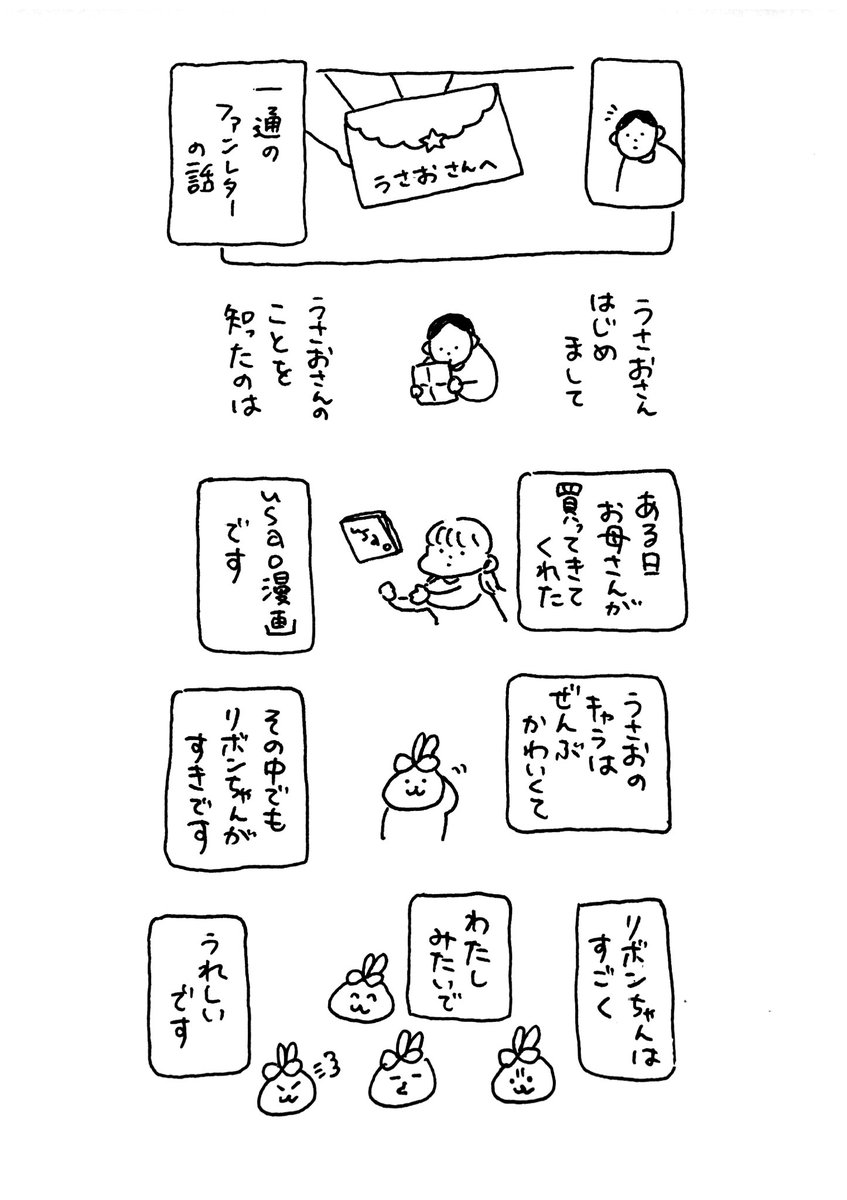 一通の
ファンレター
の話
うさおさんへ
うさおさん
はじめ
まして
うさおさんの
ことを
知ったのは
ある日
お母さんが
買ってきて
くれた
usao.
usao漫画」
です
うさおの
キャラは
ぜんぶ
かわいくて
その中でも
リボンちゃんが
すきです
リボンちゃんは
すごく
わたし
みたいで
うれしい
です